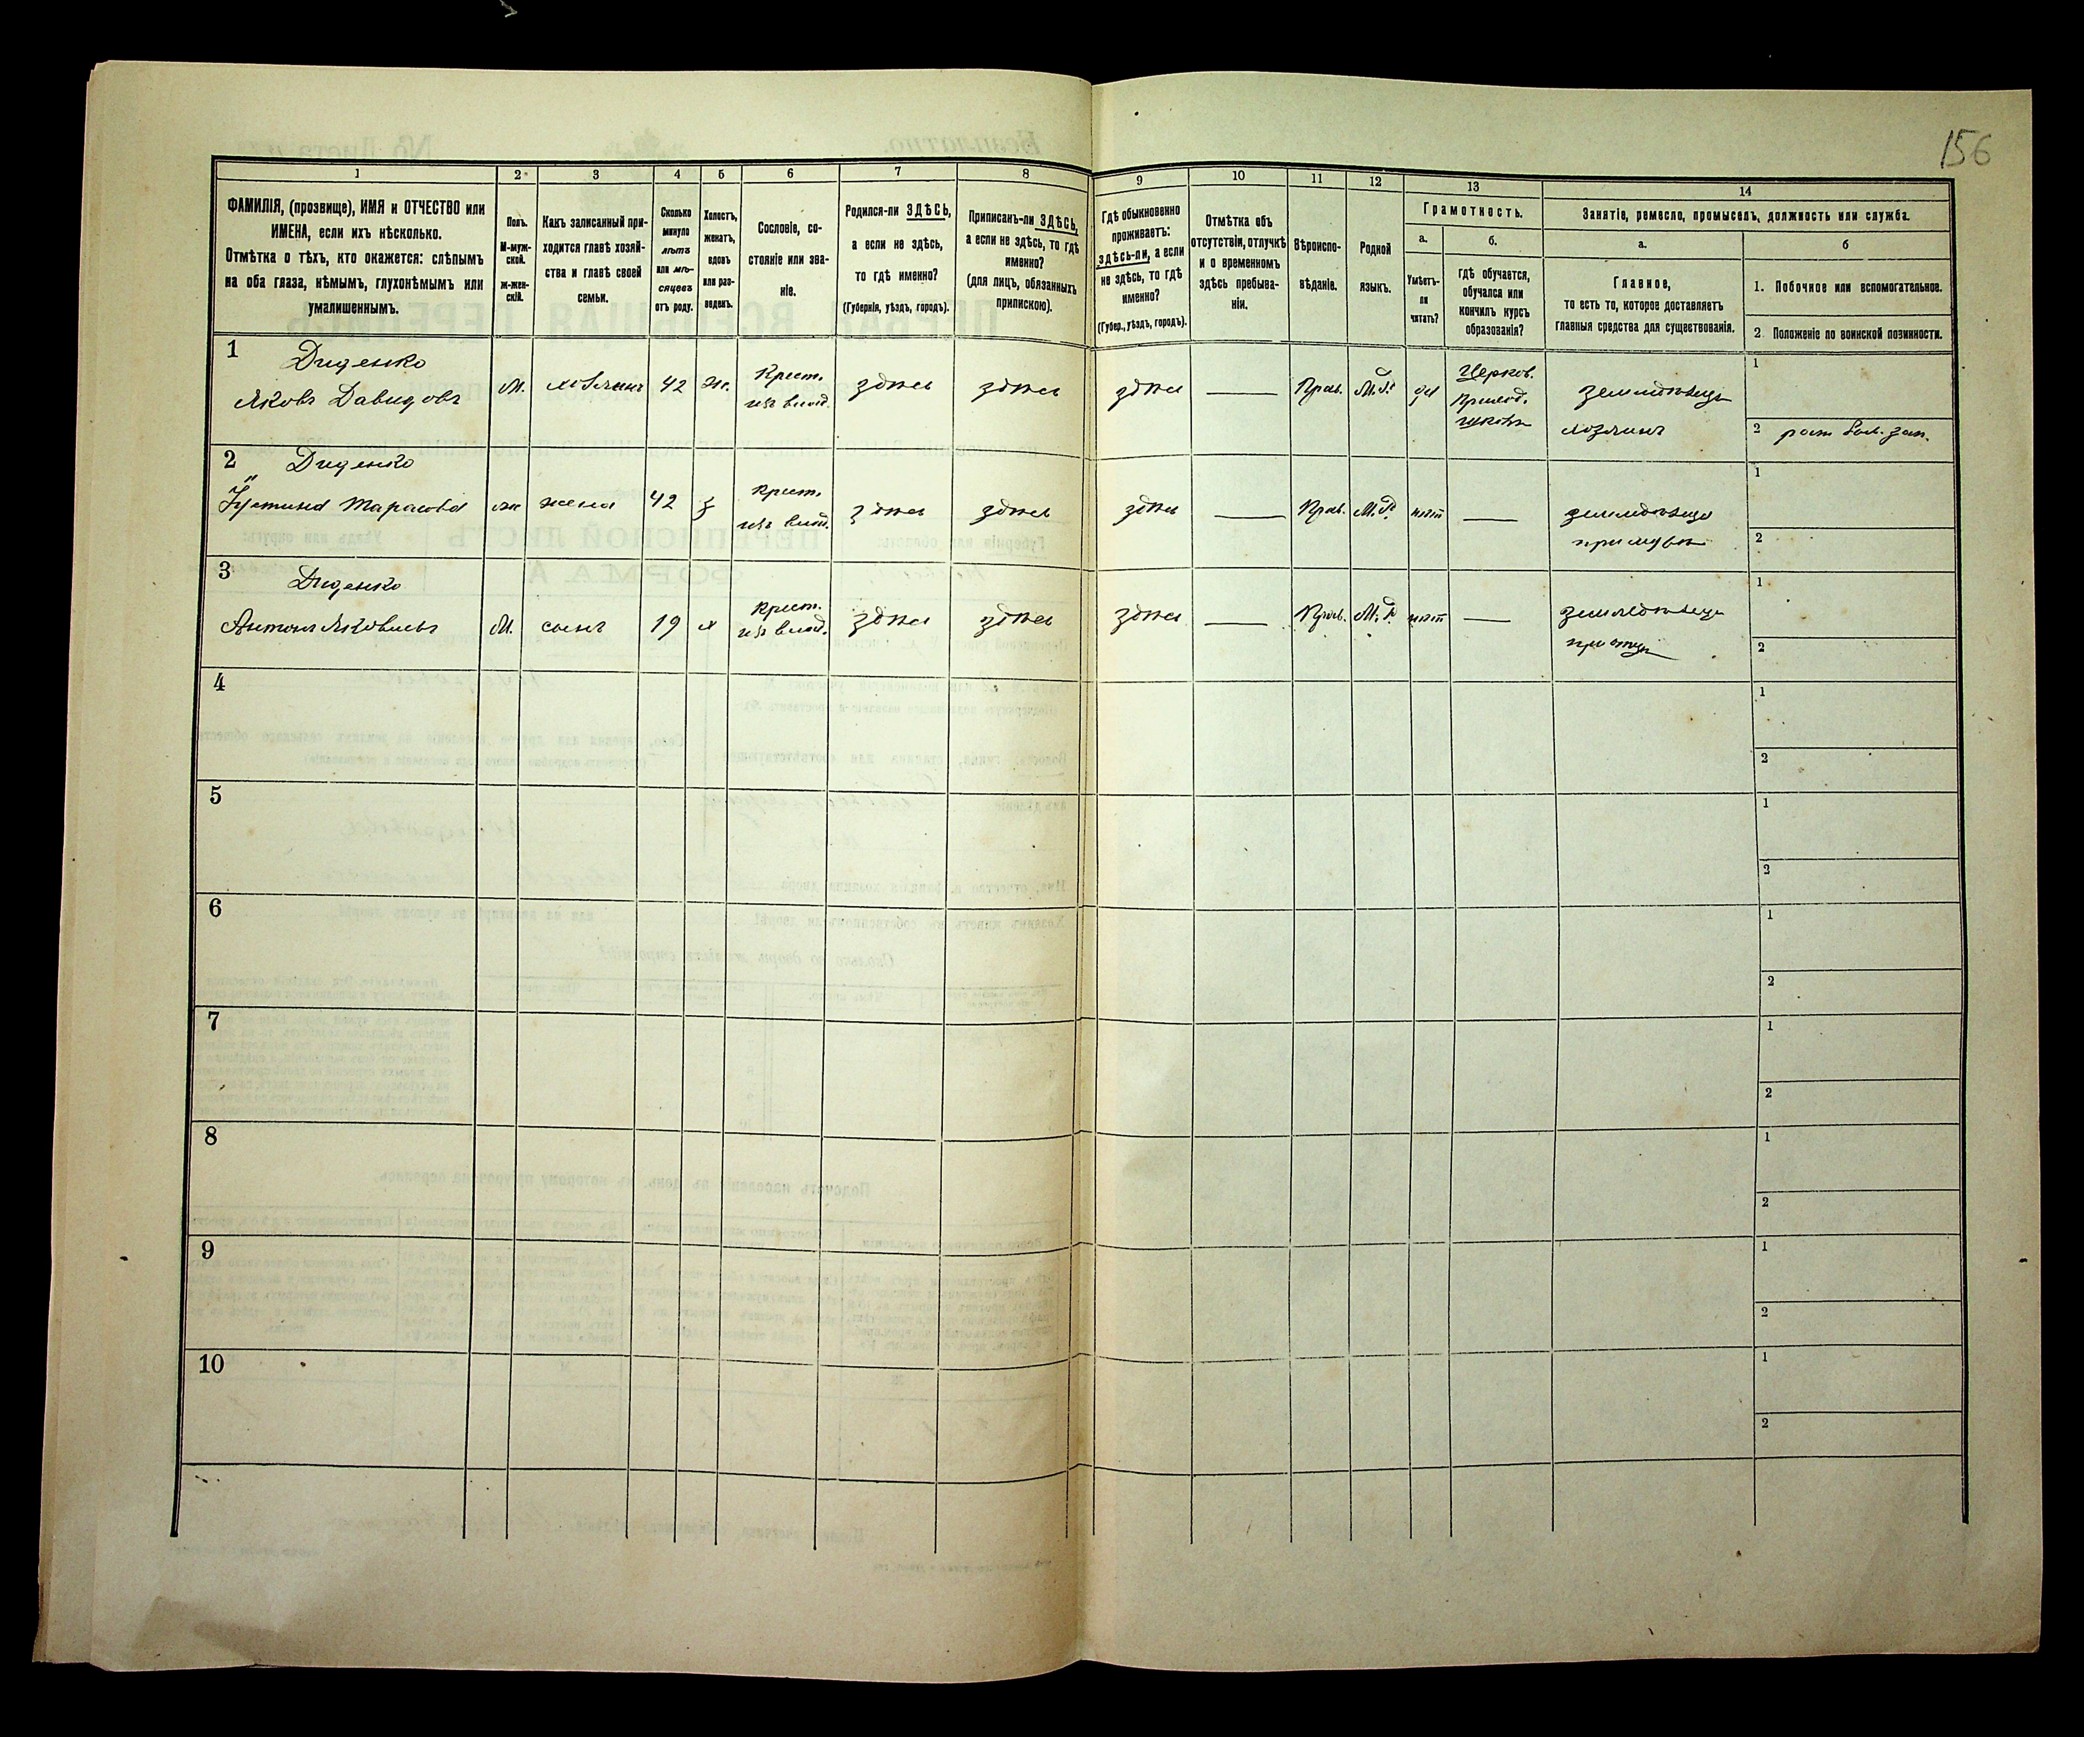 156
1
2
3
4
5
6
7
8
9
10
11
12
13
14
ФАМИЛІЯ, (прозвище), ИМЯ и ОТЧЕСТВО или
ИМЕНА, если ихъ нѣсколько.
Отмѣтка о тѣхъ, кто окажется: слѣпымъ
на оба глаза, нѣмымъ, глухонѣмымъ или
умалишеннымъ.
Полъ.
М-муж-
ской.
Ж-жен-
скій.
Какъ записанный при-
ходится главѣ хозяй-
ства и главѣ своей
семьи.
Сколько
минуло
лѣтъ
или мѣ-
сяцевъ
отъ роду.
Холостъ,
женатъ,
вдовъ
или раз-
веденъ.
Сословіе, со-
стояніе или зва-
ніе.
Родился-ли ЗДѢСЬ,
а если не здѣсь,
то гдѣ именно?
(Губернія, уѣздъ, городъ).
Приписанъ-ли ЗДѢСЬ,
а если не здѣсь, то гдѣ
именно?
(для лицъ, обязанныхъ
припискою).
Гдѣ обыкновенно
проживаетъ:
здѣсь-ли, а если
не здѣсь, то гдѣ
именно?
(Губер., уѣздъ, городъ).
Отмѣтка объ
отсутствіи, отлучкѣ
и о временномъ
здѣсь пребыва-
ніи.
Вѣроиспо-
вѣданіе.
Родной
языкъ.
Грамотность.
а.
Умѣетъ-
ли
читать?
б.
гдѣ обучается,
обучался или
кончилъ курсъ
образованія?
Занятіе, ремесло, промыселъ, должность или служба.
а.
Главное,
то есть то, которое доставляетъ
главныя средства для существованія.
б
1. Побочное или вспомогательное.
2. Положеніе по воинской повинности.
1 Диденко
Яковъ Давидовъ
М. хозяинъ 42 ж. Крест. изъ влад. здѣсь здѣсь здѣсь — Прав. М.Р. да Церков. Приход. школѣ земледѣлецъ хозяинъ
1
2 рат.
2 Диденко
Устина Тарасова
ж жена 42 з крест. изъ влад. здѣсь здѣсь здѣсь — Прав. М.Р. нѣтъ — земледѣлецъ при мужѣ
1
2
3 Диденко
Антонъ Яковлевъ
М. сынъ 19 х крест. изъ влад. здѣсь здѣсь здѣсь — Прав. М.Р. нѣтъ — земледѣлецъ при отцѣ
1
2
4
1
2
5
1
2
6
1
2
7
1
2
8
1
2
9
1
2
10
1
2